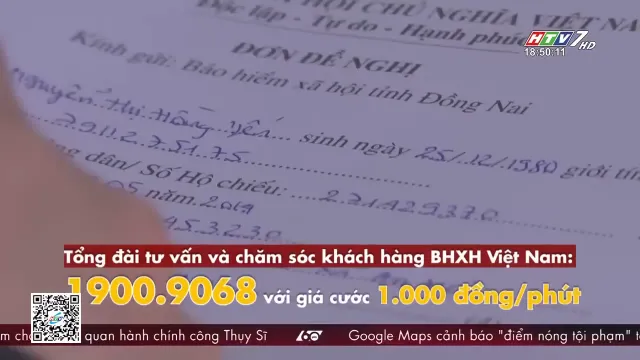 HỘI CHỦ NGHĨA VIỆT NA
Độc lập - Tự do - Hạnh phúc
HTV7 HD
18:50:11
ĐƠN ĐỀ NGHỊ
Kính gửi: Bảo hiểm xã hội tỉnh Đồng Nai
Nguyễn Thị Hồng Yến sinh ngày 25/12/1980 giới tín
7911275175
ng dân/ Số Hộ chiếu: 271429370
05 năm 2019
953230
Tổng đài tư vấn và chăm sóc khách hàng BHXH Việt Nam:
1900.9068 với giá cước 1.000 đồng/phút
m chơ quan hành chính công Thụy Sĩ 60 Google Maps cảnh báo "điểm nóng tội phạm" t